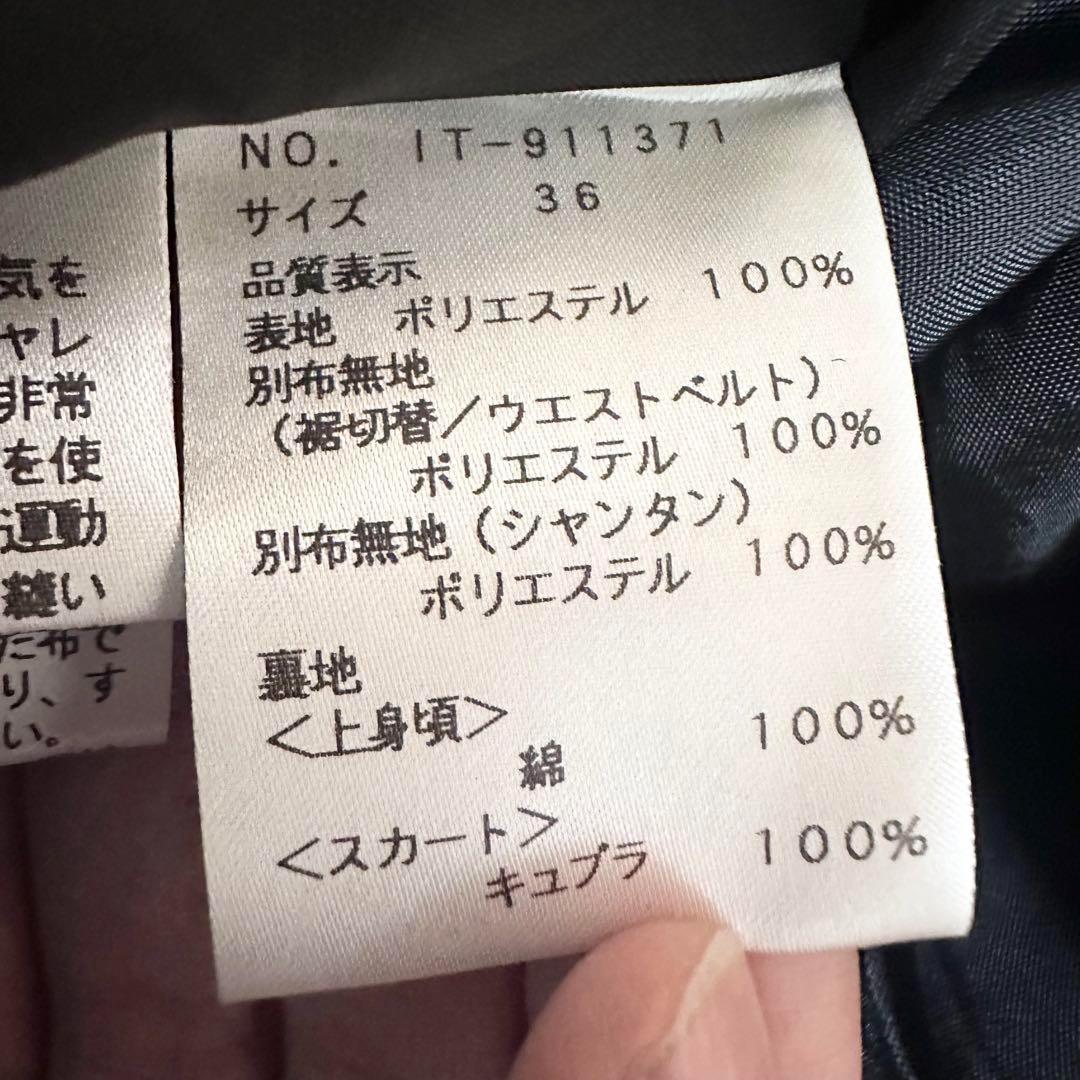 NO. IT-911371
サイズ 36
品質表示
表地 ポリエステル 100%
別布無地
(裾切替/ウエストベルト)
ポリエステル 100%
別布無地(シャンタン)
ポリエステル 100%
裏地
<上身頃>
綿 100%
<スカート>
キュプラ 100%
気を
ャレ
非常
を使
運動
縫い
た布で
り、す
い。